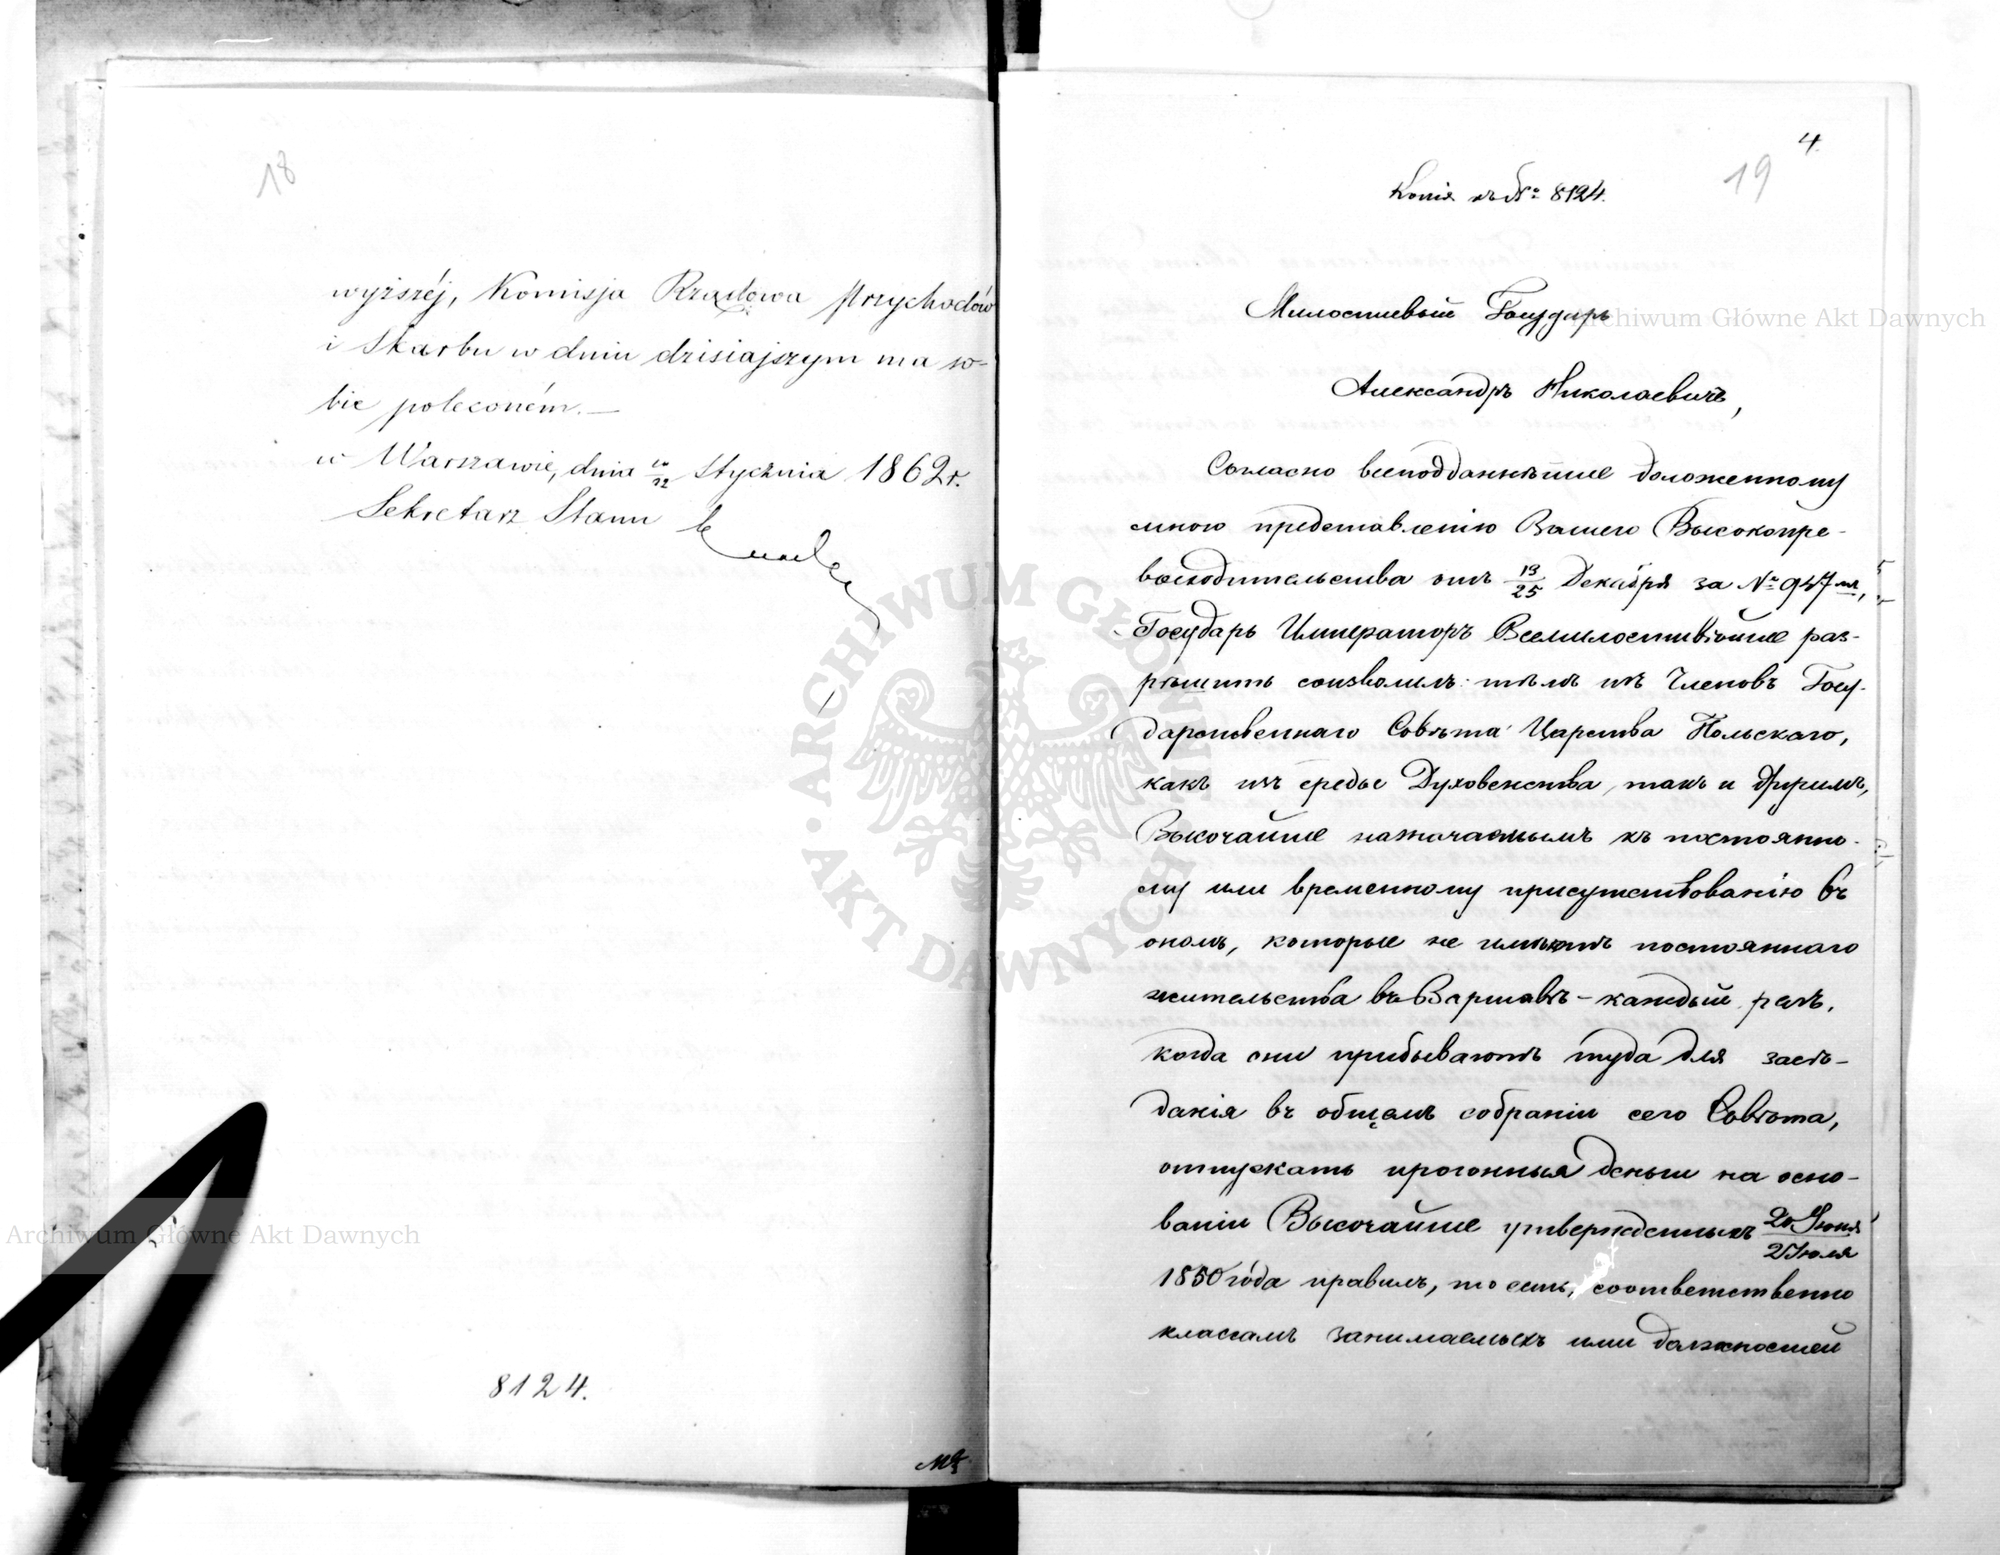 18
wyższéj, Komisja Rządowa Przychodów
i Skarbu w dniu dzisiajszym ma so-
bie poleconém.—
w Warszawie, dnia 12 Stycznia 1862 r.
Sekretarz Stanu
8124.
4.
19
Копія къ № 8124.
Милостивый Государь
Александръ Николаевичъ,
Согласно всеподданнѣйше доложенному
мною представленію Вашего Высокопре-
восходительства отъ 13/25 Декабря за № 947мъ,
Государь Императоръ Всемилостивѣйше раз-
рѣшить соизволилъ: тѣмъ изъ Членовъ Госу-
дарственнаго Совѣта Царства Польскаго,
какъ изъ среды Духовенства, такъ и другимъ,
Высочайше назначаемымъ къ постоянно-
му или временному присутствованію въ
ономъ, которые не имѣютъ постояннаго
жительства въ Варшавѣ – каждый разъ,
когда они прибываютъ туда для засѣ-
данія въ общемъ собраніи сего Совѣта,
отпускать прогонныя деньги на осно-
ваніи Высочайше утвержденныхъ 20 Іюня/2 Іюля
1850 года правилъ, то есть, соотвѣтственно
классамъ занимаемыхъ ими должностей
Archiwum Główne Akt Dawnych
Archiwum Główne Akt Dawnych
ARCHIWUM GŁÓWNE · AKT DAWNYCH ·